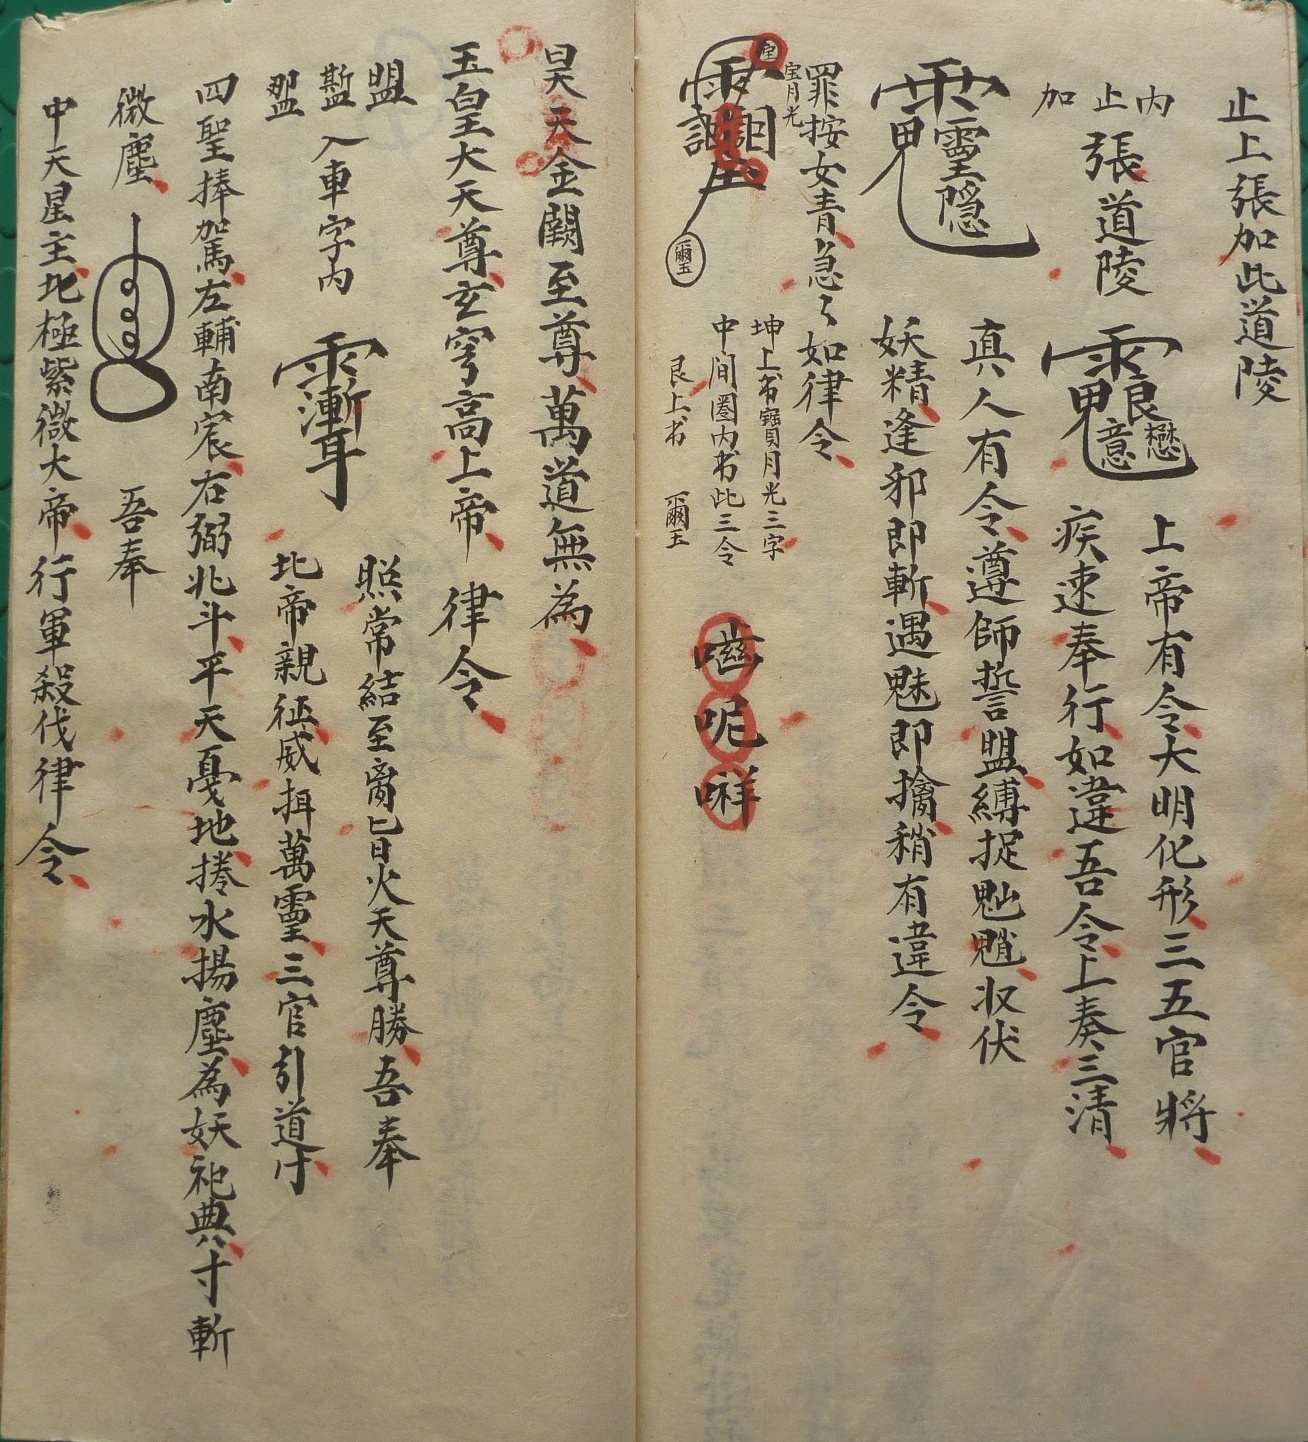 止上張加此道陵
內止加
張道陵
上帝有令大明化形三五官將
疾速奉行如違吾令上奏三清
真人有令遵師誓盟縛捉魆魈收伏
妖精逢邪即斬遇魅即擒稍有違令
罪按女青急々如律令
宝月光
坤上书寶月光三字
中间圈内书此三令
艮上书
嗞呢哶
昊天金闕至尊萬道無為
玉皇大天尊玄穹高上帝
律令
盟
入車字内
照常結至
火天尊勝吾奉
北帝親征威
萬靈三官引道
四聖捧駕左輔南宸右弼北斗平天憂地捲水揚塵為妖祀典寸斬
微塵
吾奉
中天星主北極紫微大帝行軍殺伐律令